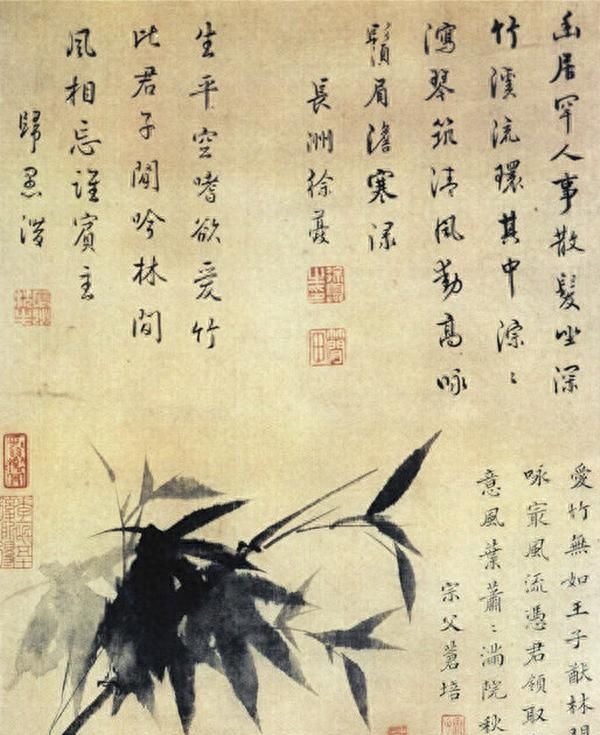 幽居罕人事散髮坐深
竹溪流環其中淙〻
瀉琴筑清風動高咏
鬚眉澹寒渌
長洲徐夔
生平空嗜欲愛竹
比君子閒吟林間
風相忘誰賓主
歸愚潛
愛竹無如王子猷林間
咏㝡風流憑君領取
意風葉蕭〻滿院秋
宗父